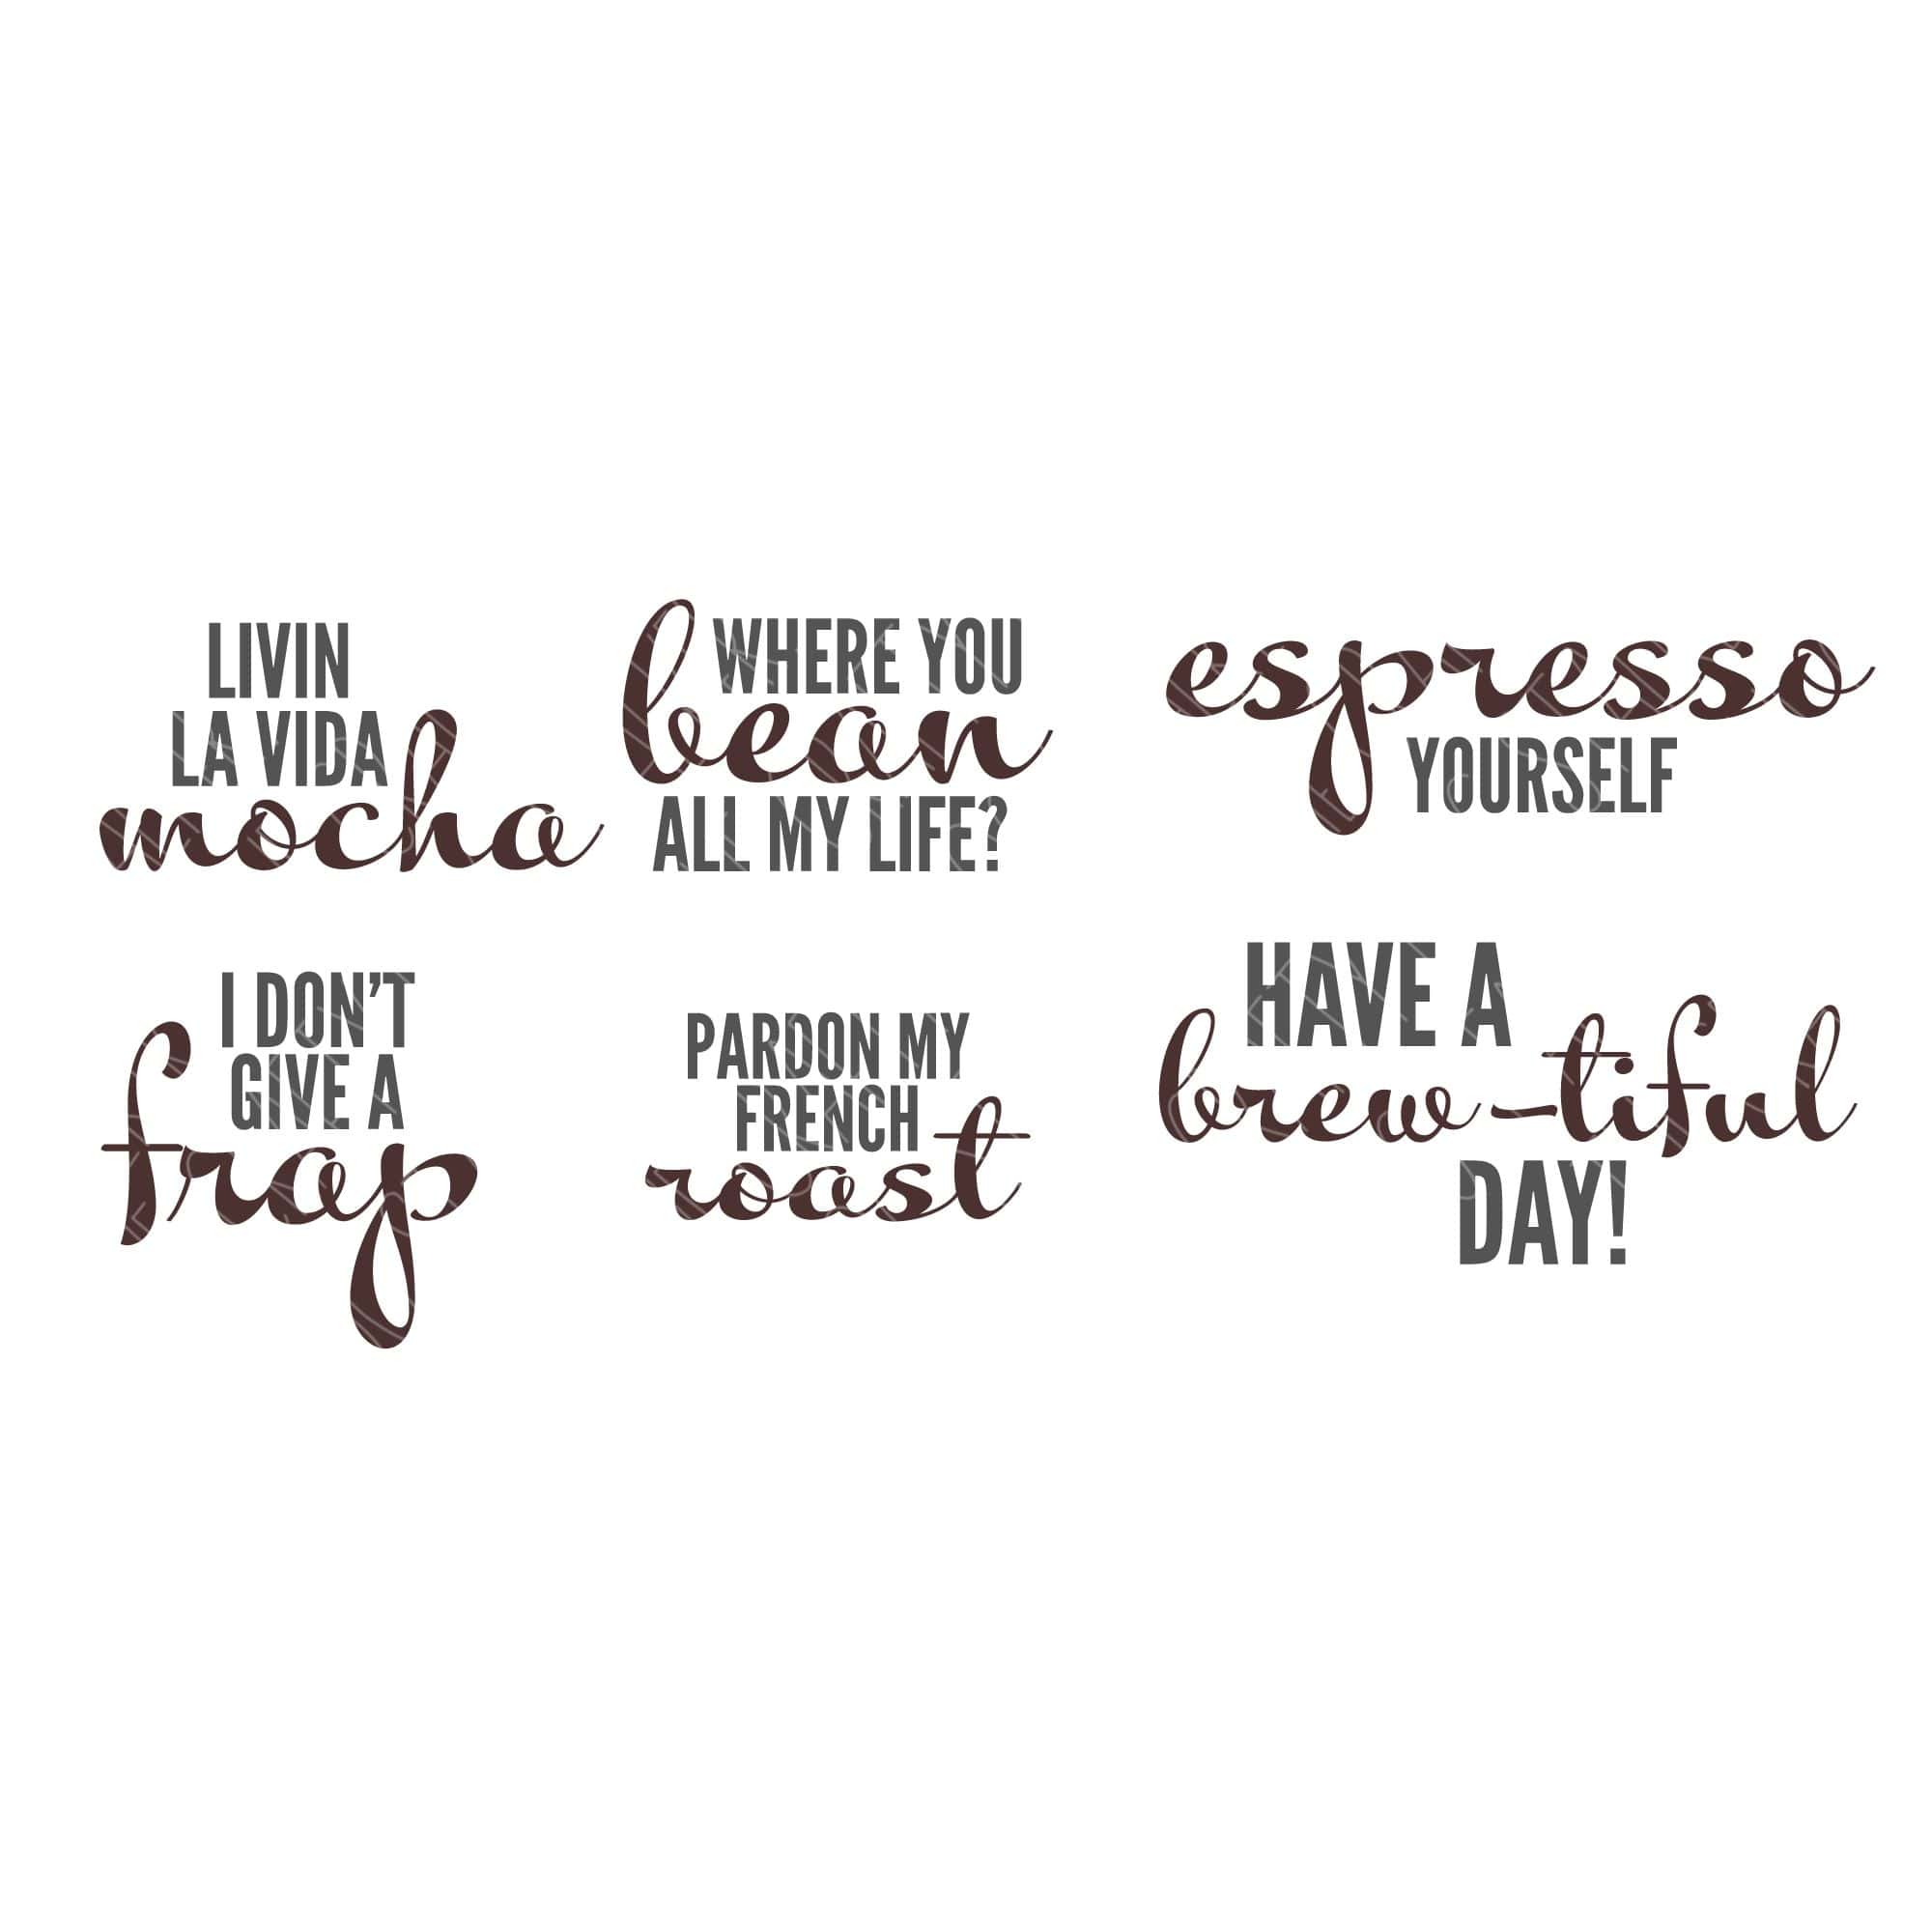 LIVIN
LA VIDA
mocha
WHERE YOU
bean
ALL MY LIFE?
espresso
YOURSELF
I DON'T
GIVE A
frap
PARDON MY
FRENCH
roast
HAVE A
brew-tiful
DAY!